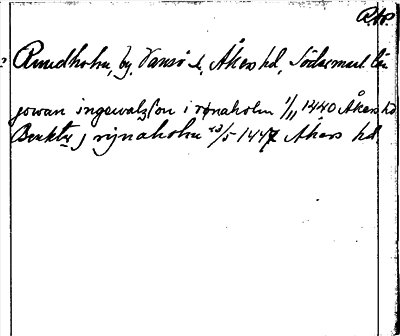 RAP.
Rundholm, by, Vansö s., Åkers hd, Södermanl. län
jowan ingewalsson i rønaholm 1/11 1440 Åkers hd
Benkt j rijnaholm 23/5 1447 Åkers hd.